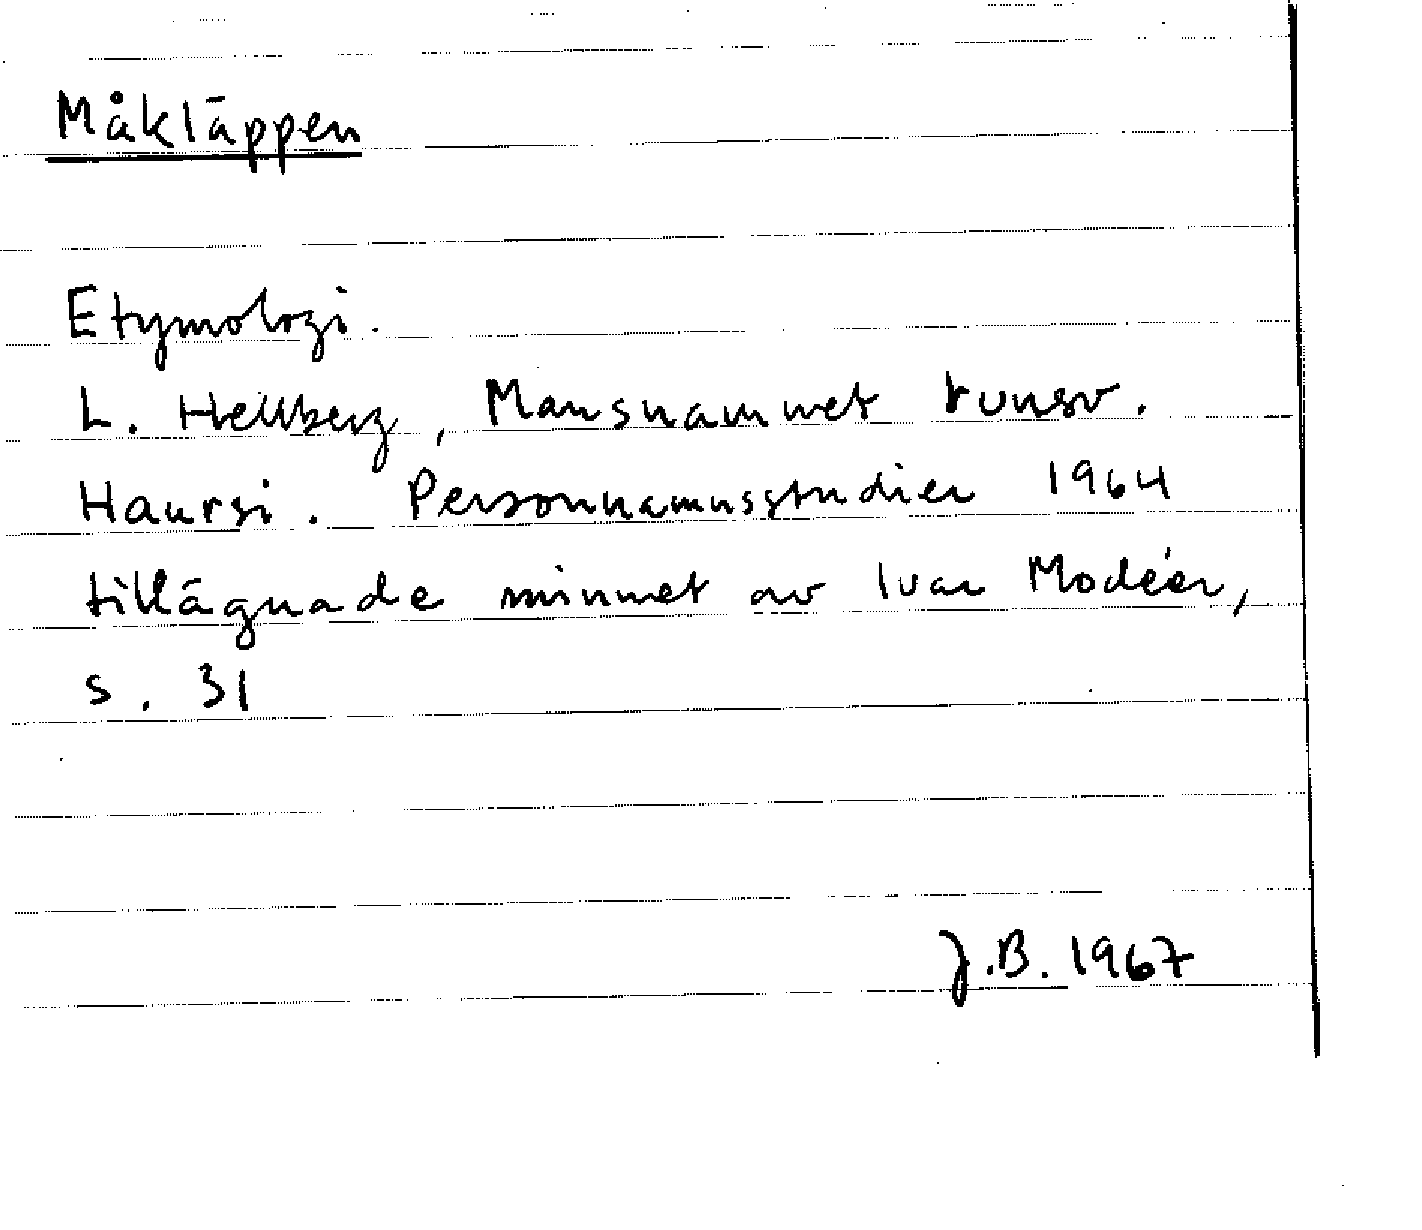 Måkläppen
Etymologi.
L. Hellberg, Mansnamnet runsv.
Haursi. Personnamnsstudier 1964
tillägnade minnet av Ivar Modéer,
s. 31
J.B. 1967